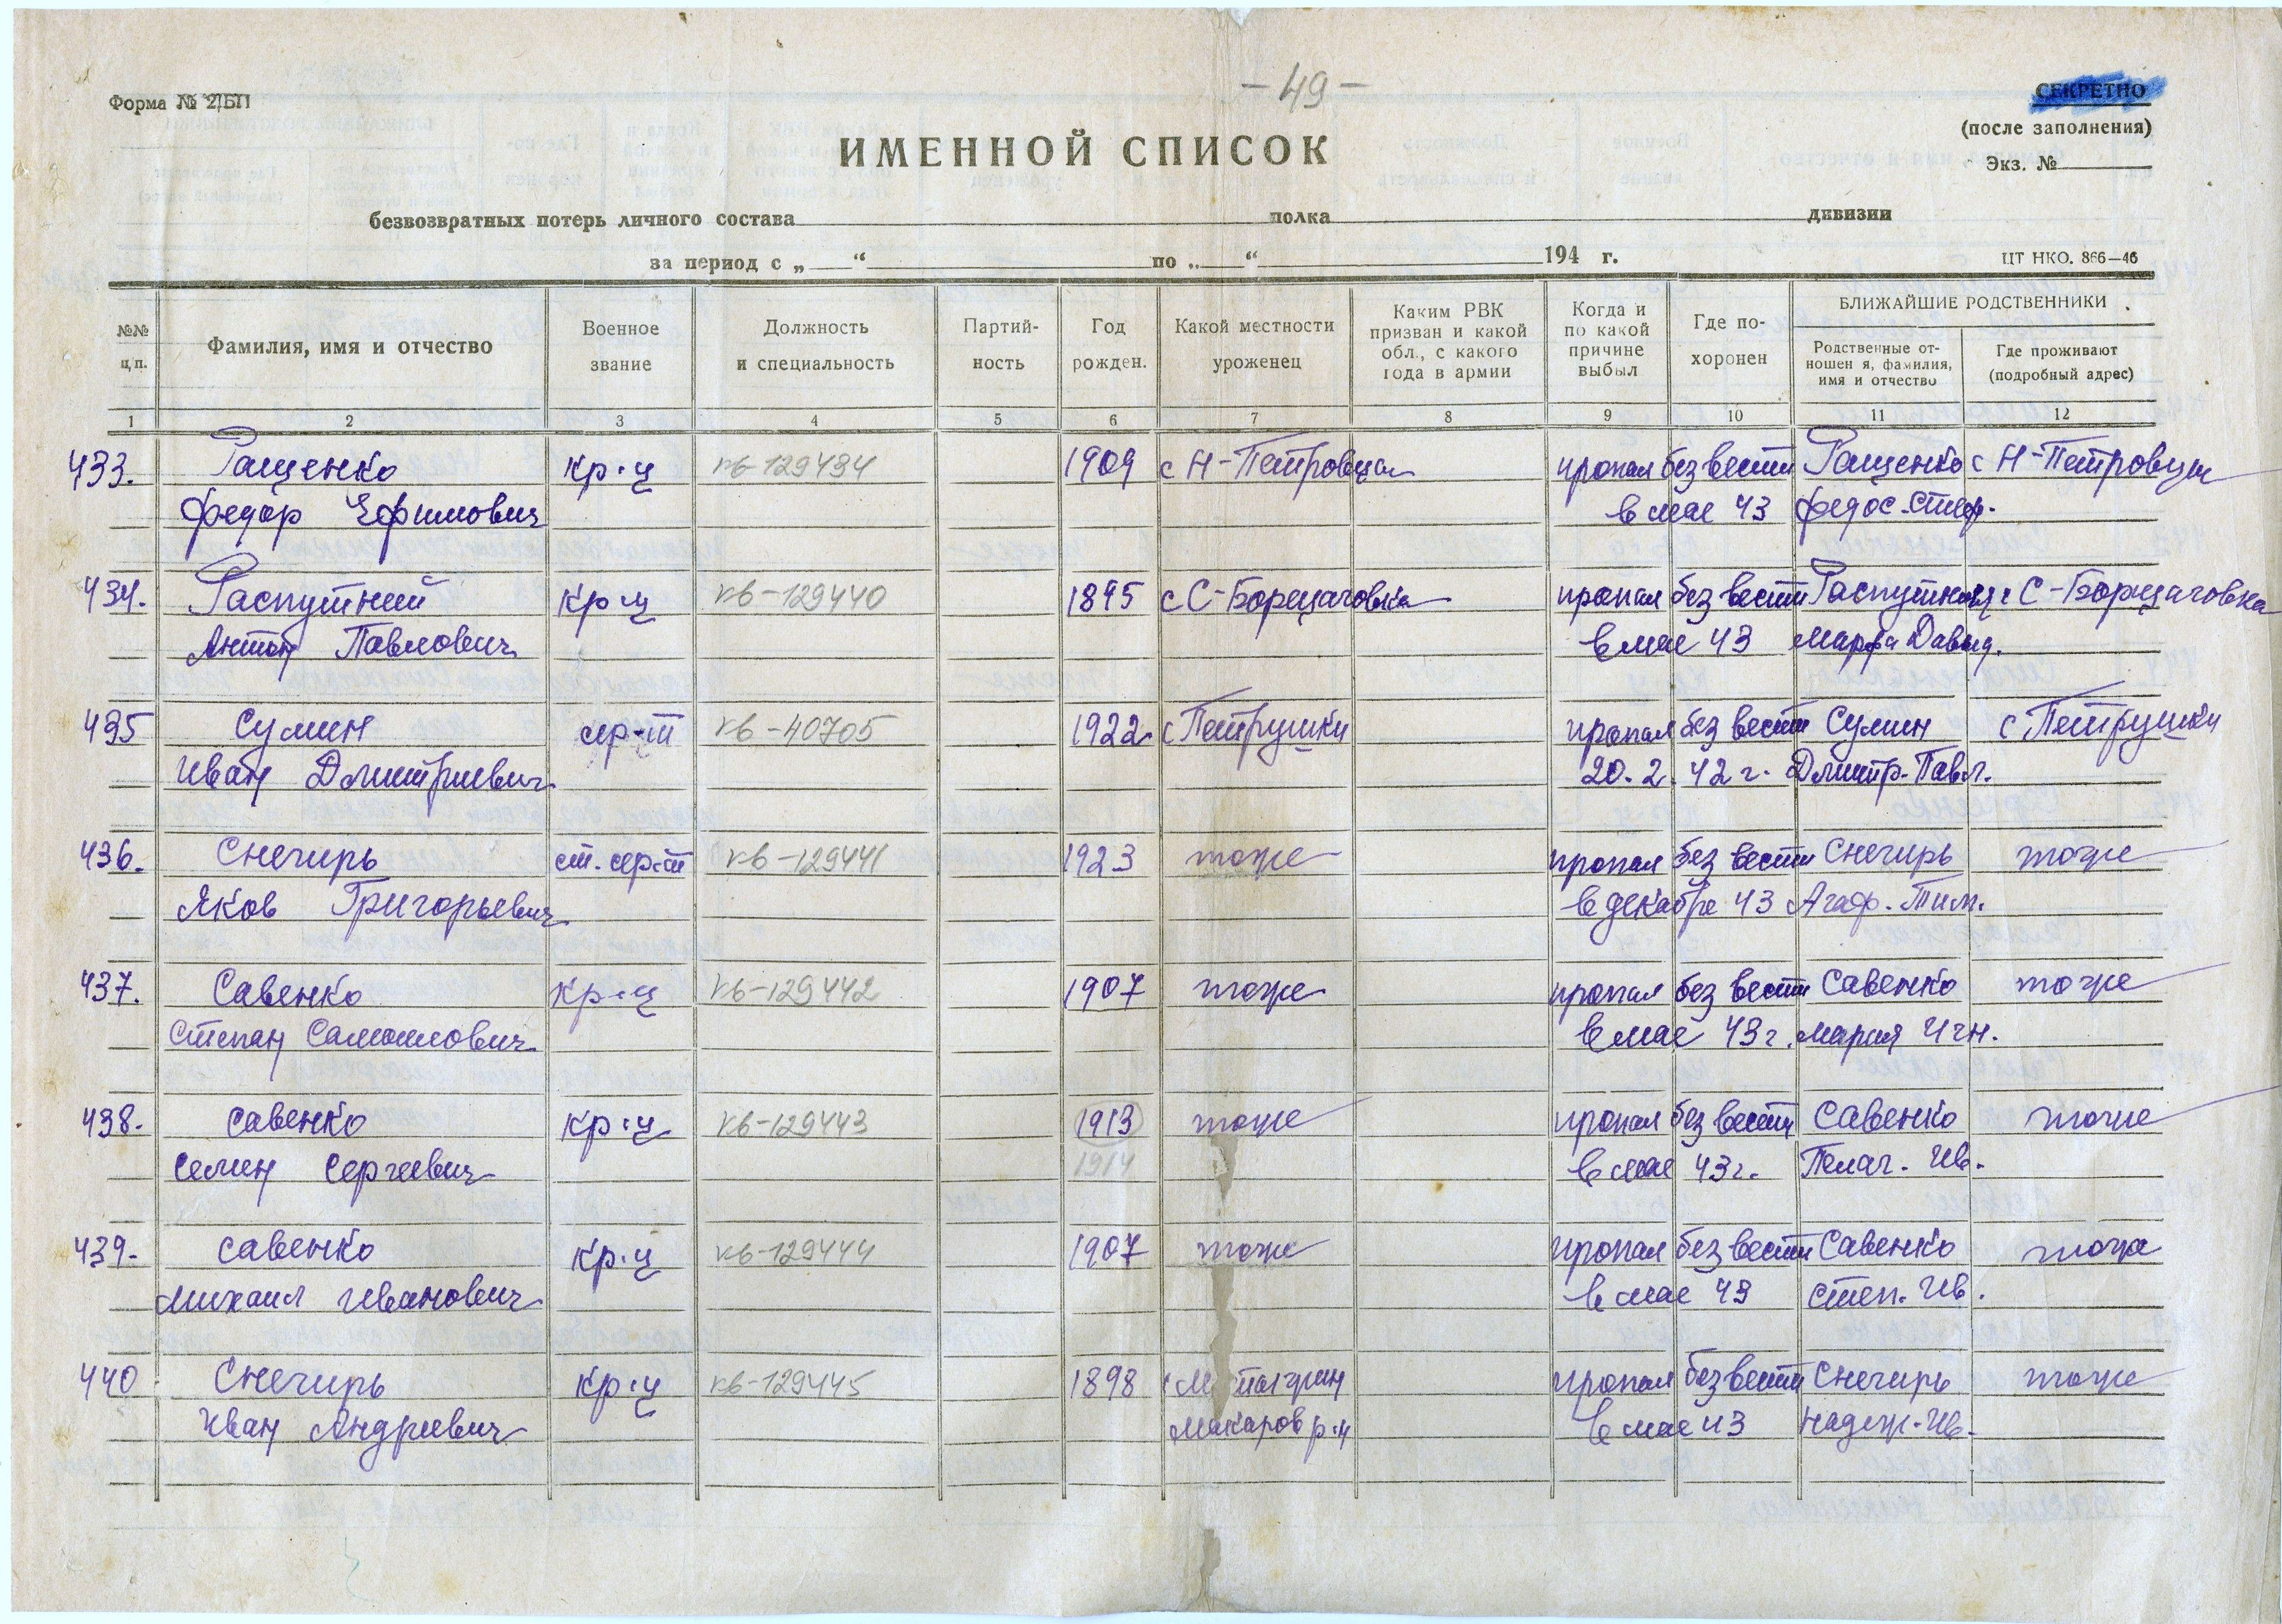 - 49 -
Форма № 2/БП
СЕКРЕТНО
(после заполнения)
Экз. №
ИМЕННОЙ СПИСОК
безвозвратных потерь личного состава полка дивизии
за период с „ “ по „ “ 194 г.
ЦТ НКО. 866—46
№№ п,п.
Фамилия, имя и отчество
Военное звание
Должность и специальность
Партий-ность
Год рожден.
Какой местности уроженец
Каким РВК призван и какой обл., с какого года в армии
Когда и по какой причине выбыл
Где по-хоронен
БЛИЖАЙШИЕ РОДСТВЕННИКИ
Родственные от-ношен я, фамилия, имя и отчество
Где проживают (подробный адрес)
1 2 3 4 5 6 7 8 9 10 11 12
433. Ращенко кр-ц кв-129434 1909 с Н-Петровцы пропал без вести Ращенко с Н-Петровцы
Федор Ефимович в мае 43 Федос.
434. Распутний кр-ц кв-129440 1895 с С-Борщаговка пропал без вести с С-Борщаговка
Антон Павлович в мае 43 Марфа Давид.
435 Сулин сер-т кв-40705 1922 с Петрушки пропал без вести Сулин с Петрушки
Иван Дмитриевич 20.2.42 г. Дмитр. Павл.
436. Снегирь ст. сер-т кв-129441 1923 тоже пропал без вести Снегирь тоже
Яков Григорьевич в декабре 43 Агаф. Тим.
437. Савенко кр-ц кв-129442 1907 тоже пропал без вести Савенко тоже
Степан Самойлович в мае 43 г. Мария Игн.
438. Савенко кр-ц кв-129443 1913 тоже пропал без вести Савенко тоже
Семен Сергеевич 1914 в мае 43 г. Пелаг. Ив.
439. Савенко кр-ц кв-129444 1907 тоже пропал без вести Савенко тоже
Михаил Иванович в мае 43 Степ. Ив.
440 Снегирь кр-ц кв-129445 1898 пропал без вести Снегирь тоже
Иван Андреевич Макаров р-н в мае 43 Надеж. Ив.